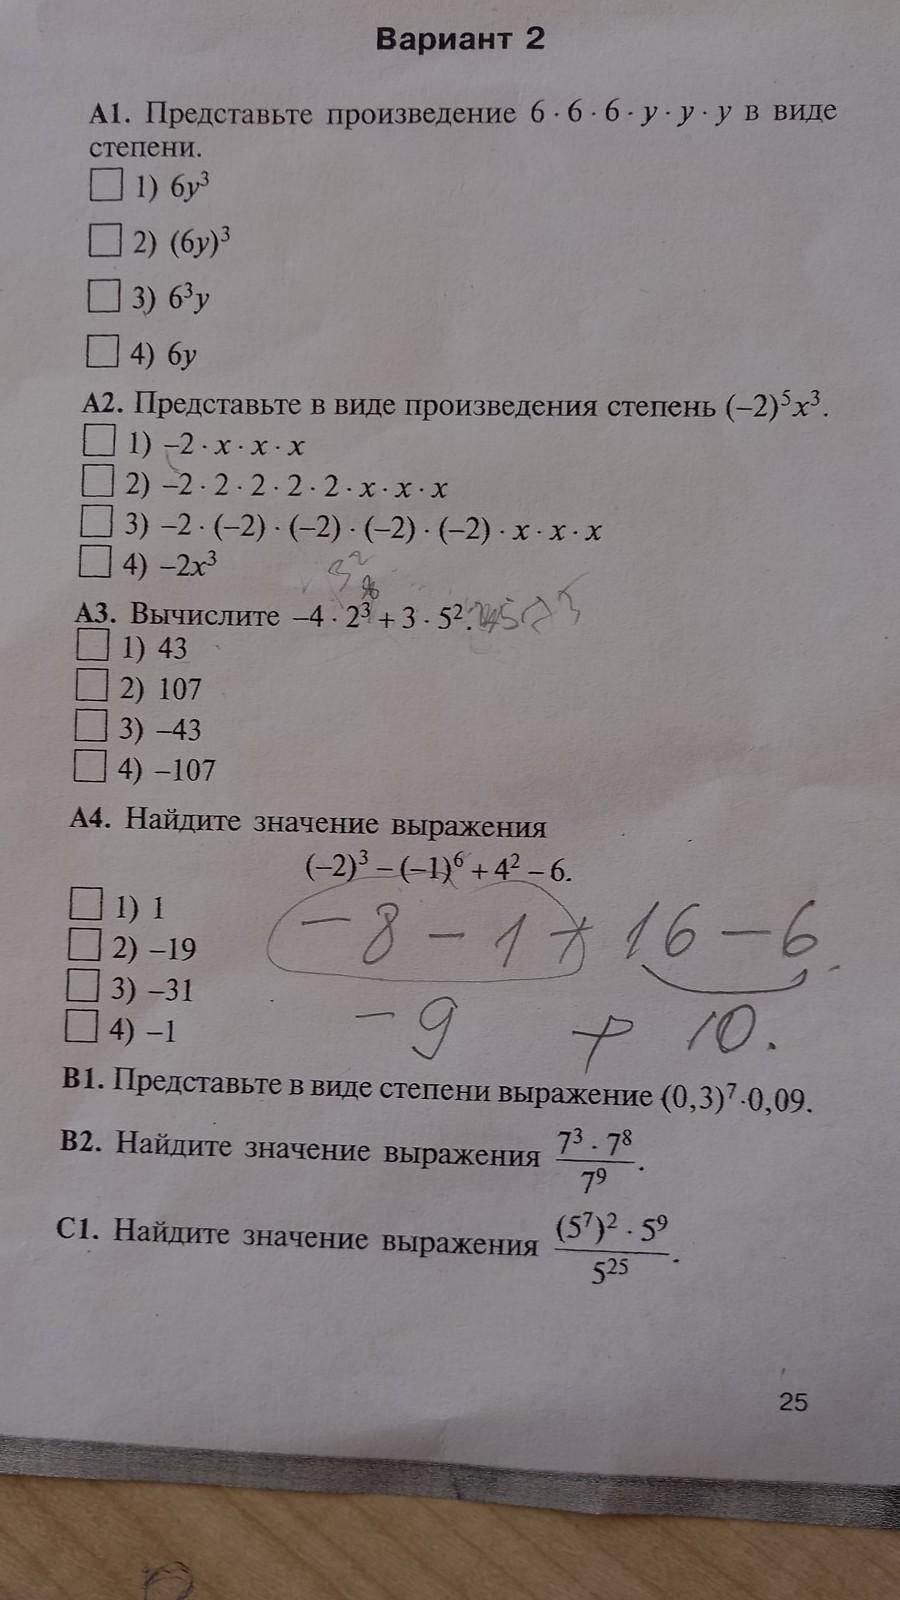 Вариант 2
А1. Представьте произведение 6 · 6 · 6 · y · y · y в виде
степени.
1) 6y³
2) (6y)³
3) 6³y
4) 6y
А2. Представьте в виде произведения степень (–2)⁵x³.
1) –2 · x · x · x
2) –2 · 2 · 2 · 2 · 2 · x · x · x
3) –2 · (–2) · (–2) · (–2) · (–2) · x · x · x
4) –2x³
А3. Вычислите –4 · 2³ + 3 · 5².
1) 43
2) 107
3) –43
4) –107
А4. Найдите значение выражения
(–2)³ – (–1)⁶ + 4² – 6.
1) 1
2) –19
3) –31
4) –1
– 8 – 1 + 16 – 6
– 9 + 10.
В1. Представьте в виде степени выражение (0,3)⁷·0,09.
В2. Найдите значение выражения 7³ · 7⁸ / 7⁹.
С1. Найдите значение выражения (5⁷)² · 5⁹ / 5²⁵.
25